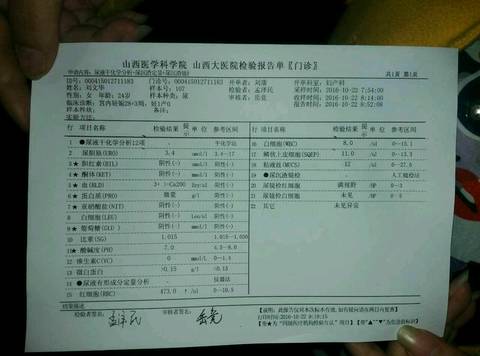 山西医学科学院 山西大医院检验报告单〖门诊〗
共1页 第1页
申请内容: 尿液干化学分析+尿沉渣定量+尿沉渣镜检
ID号: 000415012711183 门诊号: 000415012711183 开单者: 刘瑞 开单科室: 妇产科
姓名: 刘文华 样本号: 107 检验者: 孟泽民 采样时间: 2016-10-22 7:54:00
性别: 女 年龄: 24岁 样本种类: 尿 审核者: 岳竞 接收时间: 2016-10-22 8:14:00
临床诊断: 宫内妊娠28+3周, 孕1产0 报告时间: 2016-10-22 8:52:08
样本性状: 备注:
行 项目名称 检验结果 提示 单位 参考区间 行 项目名称 检验结果 提示 单位 参考区间
1 ●尿液干化学分析12项 干化学法
2 尿胆原(URO) 3.4 mmol/l 3.4-17
3 ★胆红素(BIL) 阴性(-) 阴性(-)
4 ★酮体(KET) 阴性(-) mmol/l 阴性(-)
5 ★血(BLD) 3+ >=Ca200 Ery/ul 阴性(-)
6 ★蛋白质(PRO) 微量 g/l 阴性(-)
7 ★亚硝酸盐(NIT) 阴性(-) 阴性(-)
8 白细胞(LEU) 阴性(-) Leu/ul 阴性(-)
9 ★葡萄糖(GLU) 阴性(-) mmol/l 阴性(-)
10 比重(SG) 1.015 1.015-1.030
11 ★酸碱度(PH) 7.0
12 维生素C(VC) 0 mmol/l 0-1.4
13 微白蛋白 >0.15 g/l <0.15
14 ●尿液有形成分定量分析 仪器法
15 红细胞(RBC) 473.0 /ul
16 白细胞(WBC) 8.0 /ul
17 鳞状上皮细胞(SQEP) 11.0 /ul
18 粘液丝(MUCS) 12 /ul
19 ●尿沉渣镜检 人工镜检法
20 尿镜检红细胞 满视野 /HP 0-3
21 尿镜检白细胞 未见 /HP 0-5
22 其它 未见异常
结果描述
检验者签名: 孟泽民 审核者签名: 岳竞
打印时间: 2016-10-22 9:19:15